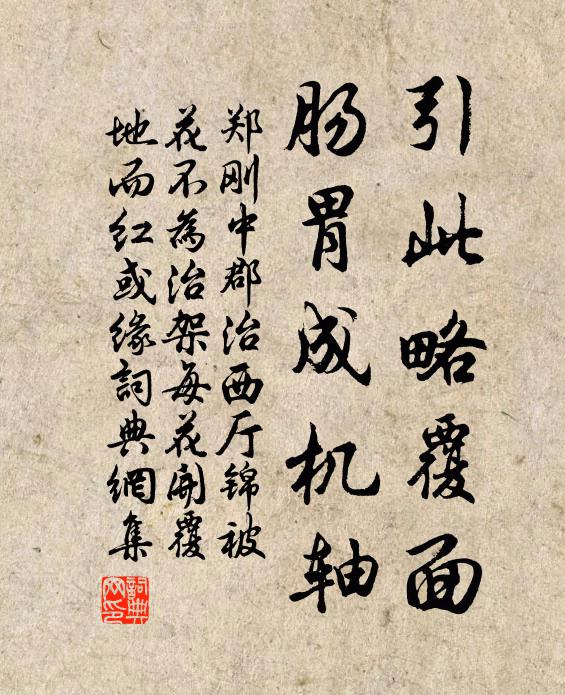 引此略覆面
肠胃成机轴
郑刚中郡治西厅锦被
花不為治架每花開覆
地而红或缘詞典網集
詞典网印